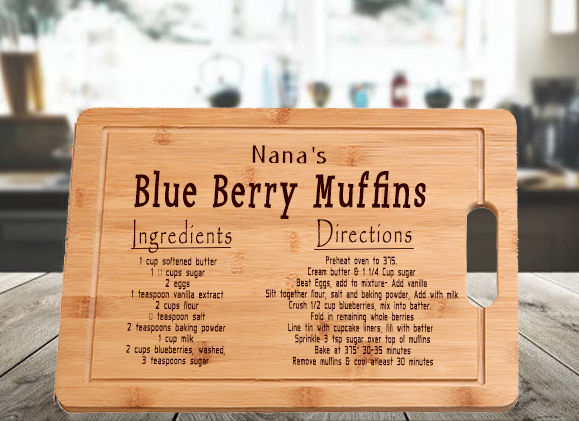 Nana's
Blue Berry Muffins
Ingredients
1 cup softened butter
1 ▯ cups sugar
2 eggs
1 teaspoon vanilla extract
2 cups flour
▯ teaspoon salt
2 teaspoons baking powder
1 cup milk
2 cups blueberries, washed,
3 teaspoons sugar
Directions
Preheat oven to 375.
Cream butter & 1 1/4 Cup sugar
Beat Eggs, add to mixture- Add vanilla
Sift together flour, salt and baking powder, Add with milk
Crush 1/2 cup blueberries, mix into batter.
Fold in remaining whole berries
Line tin with cupcake liners, fill with batter
Sprinkle 3 tsp sugar over top of muffins
Bake at 375° 30-35 minutes
Remove muffins & cool atleast 30 minutes